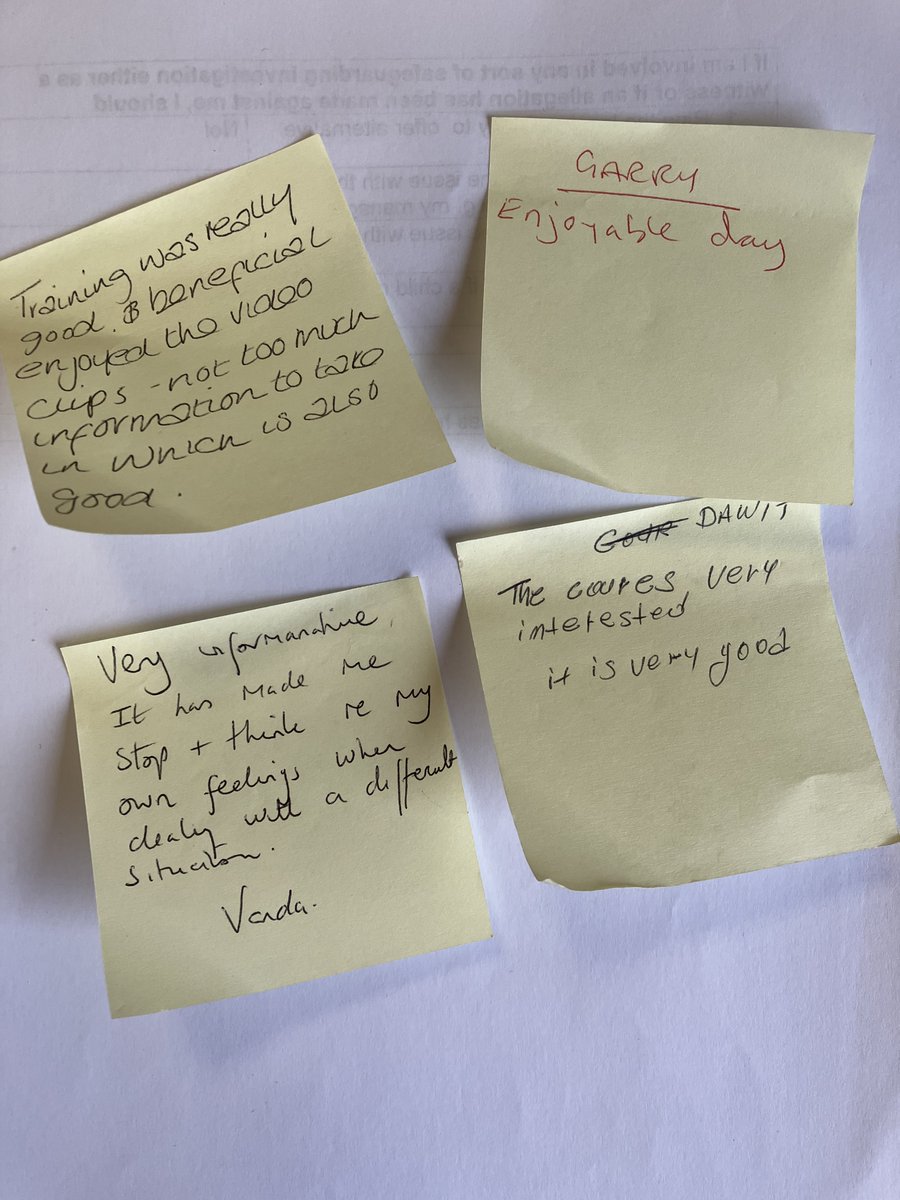 Training was really
good. & beneficial
enjoyed the video
clips - not too much
information to take
in which is also
good.
GARRY
Enjoyable day
Very informanative.
It has made me
stop + think re my
own feelings when
dealing with a different
situation.
Vanda.
DAWIT
The coures very
interested
it is very good
If I am involved in any sort of safeguarding investigation either as a
witness of if an allegation has been made against me, I should
to offer alternative
issue with
my
issue with
child